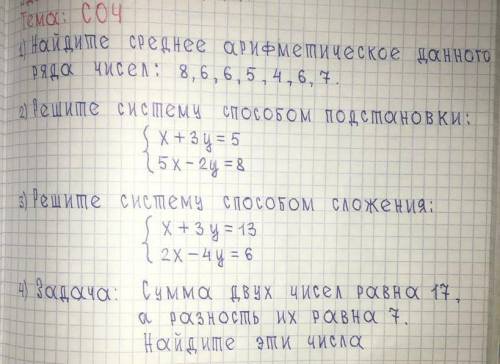 Тема: СОЧ
1) Найдите среднее арифметическое данного
ряда чисел: 8, 6, 6, 5, 4, 6, 7.
2) Решите систему способом подстановки:
{ x + 3y = 5
5x - 2y = 8
3) Решите систему способом сложения:
{ x + 3y = 13
2x - 4y = 6
4) Задача: Сумма двух чисел равна 17,
а разность их равна 7.
Найдите эти числа